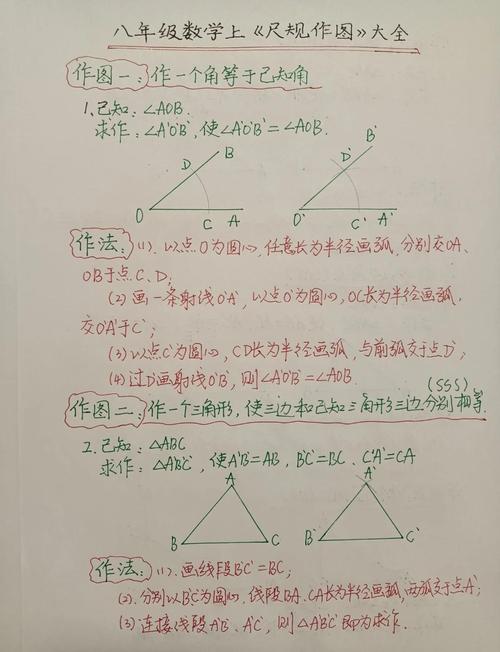 八年级数学上《尺规作图》大全
作图一：作一个角等于已知角
1.已知：∠AOB.
求作：∠A'O'B'，使∠A'O'B'=∠AOB.
B
D
O
C
A
B'
D'
O'
C'
A'
作法：(1). 以点O为圆心，任意长为半径画弧，分别交OA、
OB于点C、D；
(2)画一条射线O'A'，以点O'为圆心，OC长为半径画弧，
交O'A'于C'；
(3)以点C'为圆心，CD长为半径画弧，与前弧交于点D'；
(4)过D'画射线O'B'，则∠A'O'B'=∠AOB.
(SSS)
作图二：作一个三角形，使三边和已知三角形三边分别相等.
2.已知：△ABC
求作：△A'B'C'，使A'B'=AB，B'C'=BC、C'A'=CA
A
B
C
A'
B'
C'
作法：(1).画线段B'C'=BC；
(2).分别以B'C'为圆心，线段BA、CA长为半径画弧，两弧交于点A'；
(3)连接线段A'B'、A'C'，则△A'B'C'即为求作.